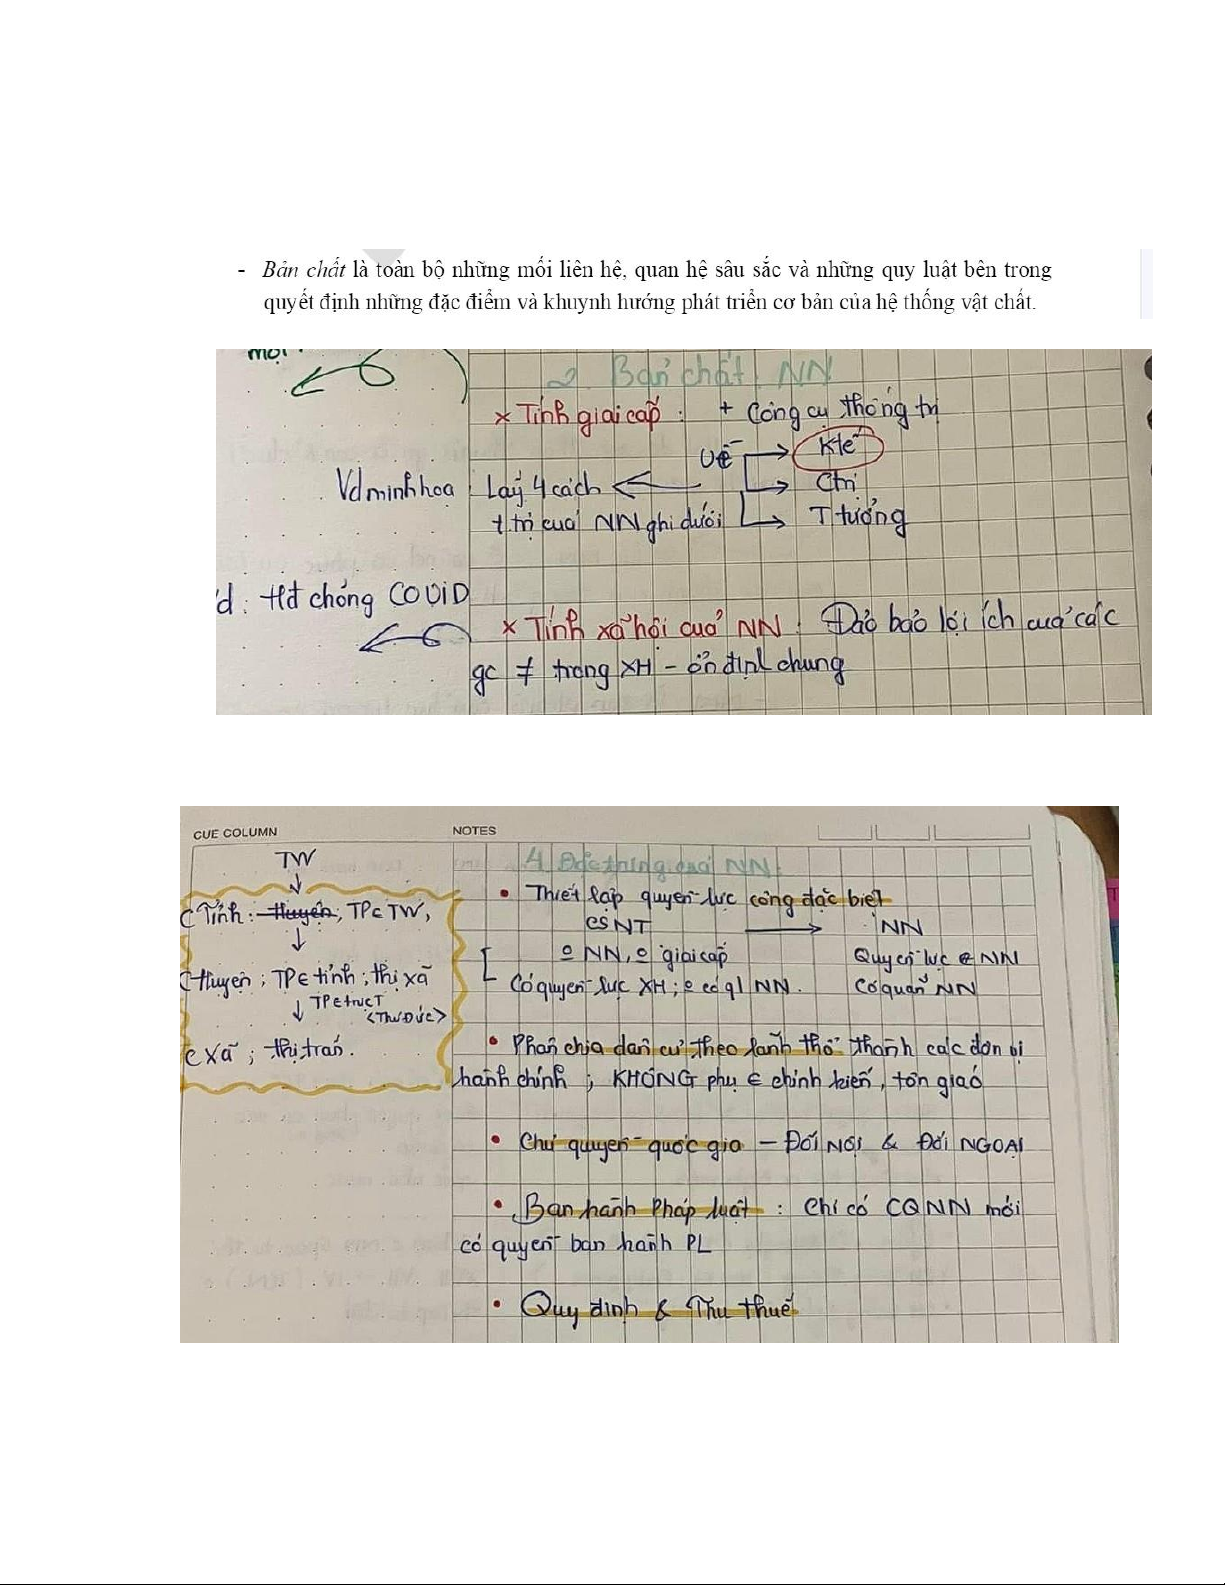 - Bản chất là toàn bộ những mối liên hệ, quan hệ sâu sắc và những quy luật bên trong
quyết định những đặc điểm và khuynh hướng phát triển cơ bản của hệ thống vật chất.
2. Bản chất NN
× Tính giai cấp : + Công cụ thống trị
Về → Ktế
→ Ctrị
→ T tưởng
Vd minh hoạ : Lấy 4 cách
t trị của NN ghi dưới
d : Hđ chống COVID
× Tính xã hội của NN : Đảo bảo lợi ích của các
gc ≠ trong XH - ổn định chung
CUE COLUMN
NOTES
TW
↓
Tỉnh : Huyện, TP ∈ TW,
↓
Huyện ; TP ∈ tỉnh ; thị xã
↓ TP ∈ trực T
<Thủ Đức>
Xã ; thị trấn.
4. Đặc trưng của NN :
• Thiết lập quyền lực công đặc biệt
CSNT → NN
NN, giai cấp
Quyền lực ∈ NN
Có quyền lực XH ; có ql NN.
Có quản NN
• Phân chia dân cư theo lãnh thổ thành các đơn vị
hành chính ; KHÔNG phụ ∈ chính kiến, tôn giáo
• Chủ quyền quốc gia - ĐỐI NỘI & ĐỐI NGOẠI
• Ban hành Pháp luật : Chỉ có CQNN mới
có quyền ban hành PL
• Quy định & Thu thuế